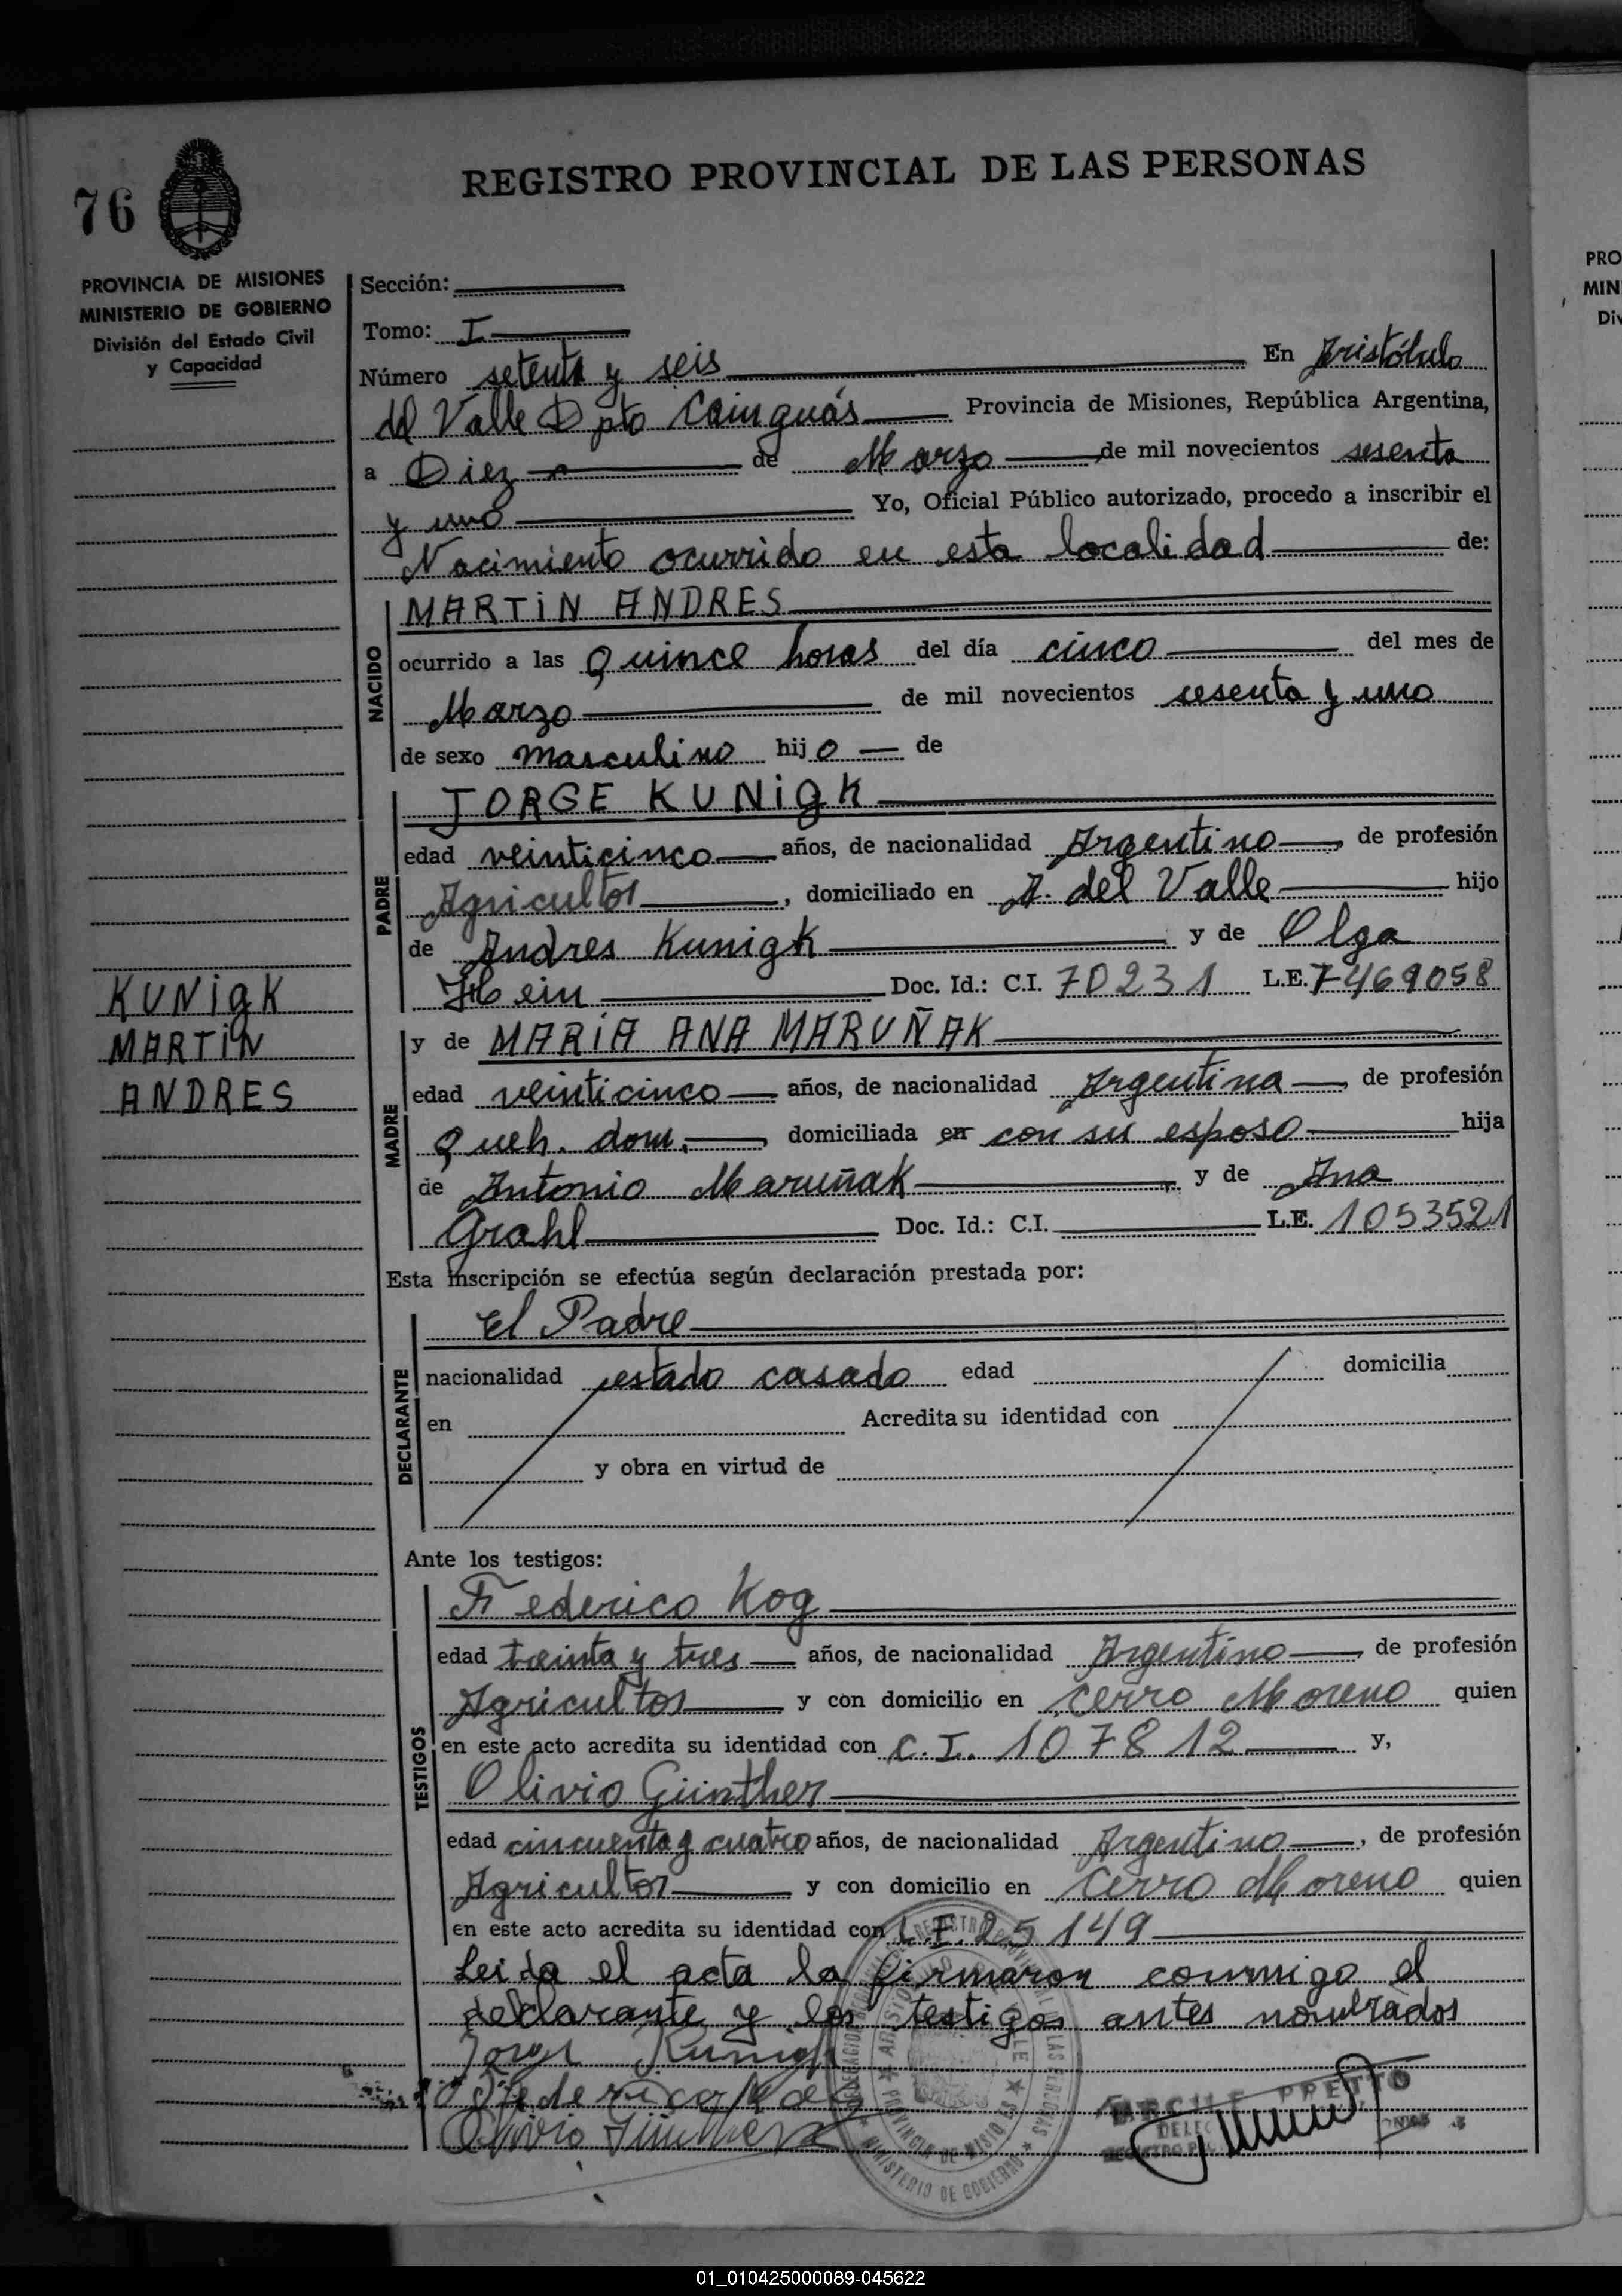 76
REGISTRO PROVINCIAL DE LAS PERSONAS
PROVINCIA DE MISIONES
MINISTERIO DE GOBIERNO
División del Estado Civil
y Capacidad
Sección:
Tomo: I
Número setenta y seis En Aristóbulo
del Valle Dpto Cainguás Provincia de Misiones, República Argentina,
a Diez de Marzo de mil novecientos sesenta
y uno Yo, Oficial Público autorizado, procedo a inscribir el
Nacimiento ocurrido en esta localidad de:
NACIDO
MARTIN ANDRES
ocurrido a las Quince horas del día cinco del mes de
Marzo de mil novecientos sesenta y uno
de sexo masculino hijo de
PADRE
JORGE KUNIGK
edad veinticinco años, de nacionalidad Argentino, de profesión
Agricultor, domiciliado en A. del Valle hijo
de Andres Kunigk y de Olga
Hein Doc. Id.: C.I. 70231 L.E. 7469058
KUNIGK
MARTIN
ANDRES
MADRE
y de MARÍA ANA MARUÑAK
edad veinticinco años, de nacionalidad Argentina, de profesión
Queh. dom., domiciliada en con su esposo hija
de Antonio Maruñak y de Ana
Grahl Doc. Id.: C.I. L.E. 1053521
Esta inscripción se efectúa según declaración prestada por:
DECLARANTE
El Padre
nacionalidad estado casado edad domicilia
en Acredita su identidad con
y obra en virtud de
Ante los testigos:
TESTIGOS
Federico Kog
edad treinta y tres años, de nacionalidad Argentino, de profesión
Agricultor y con domicilio en Cerro Moreno quien
en este acto acredita su identidad con C.I. 107812 y,
Olivio Günther
edad cincuenta y cuatro años, de nacionalidad Argentino, de profesión
Agricultor y con domicilio en Cerro Moreno quien
en este acto acredita su identidad con L.E. 25149
Leida el acta la firmaron conmigo el
declarante y los testigos antes nombrados
Jorge Kunigk
Federico Kog
Olivio Günther
PRETTO
PROVINCIA DE MISIONES
MINISTERIO DE GOBIERNO
PRO
MIN
Div
01_010425000089-045622